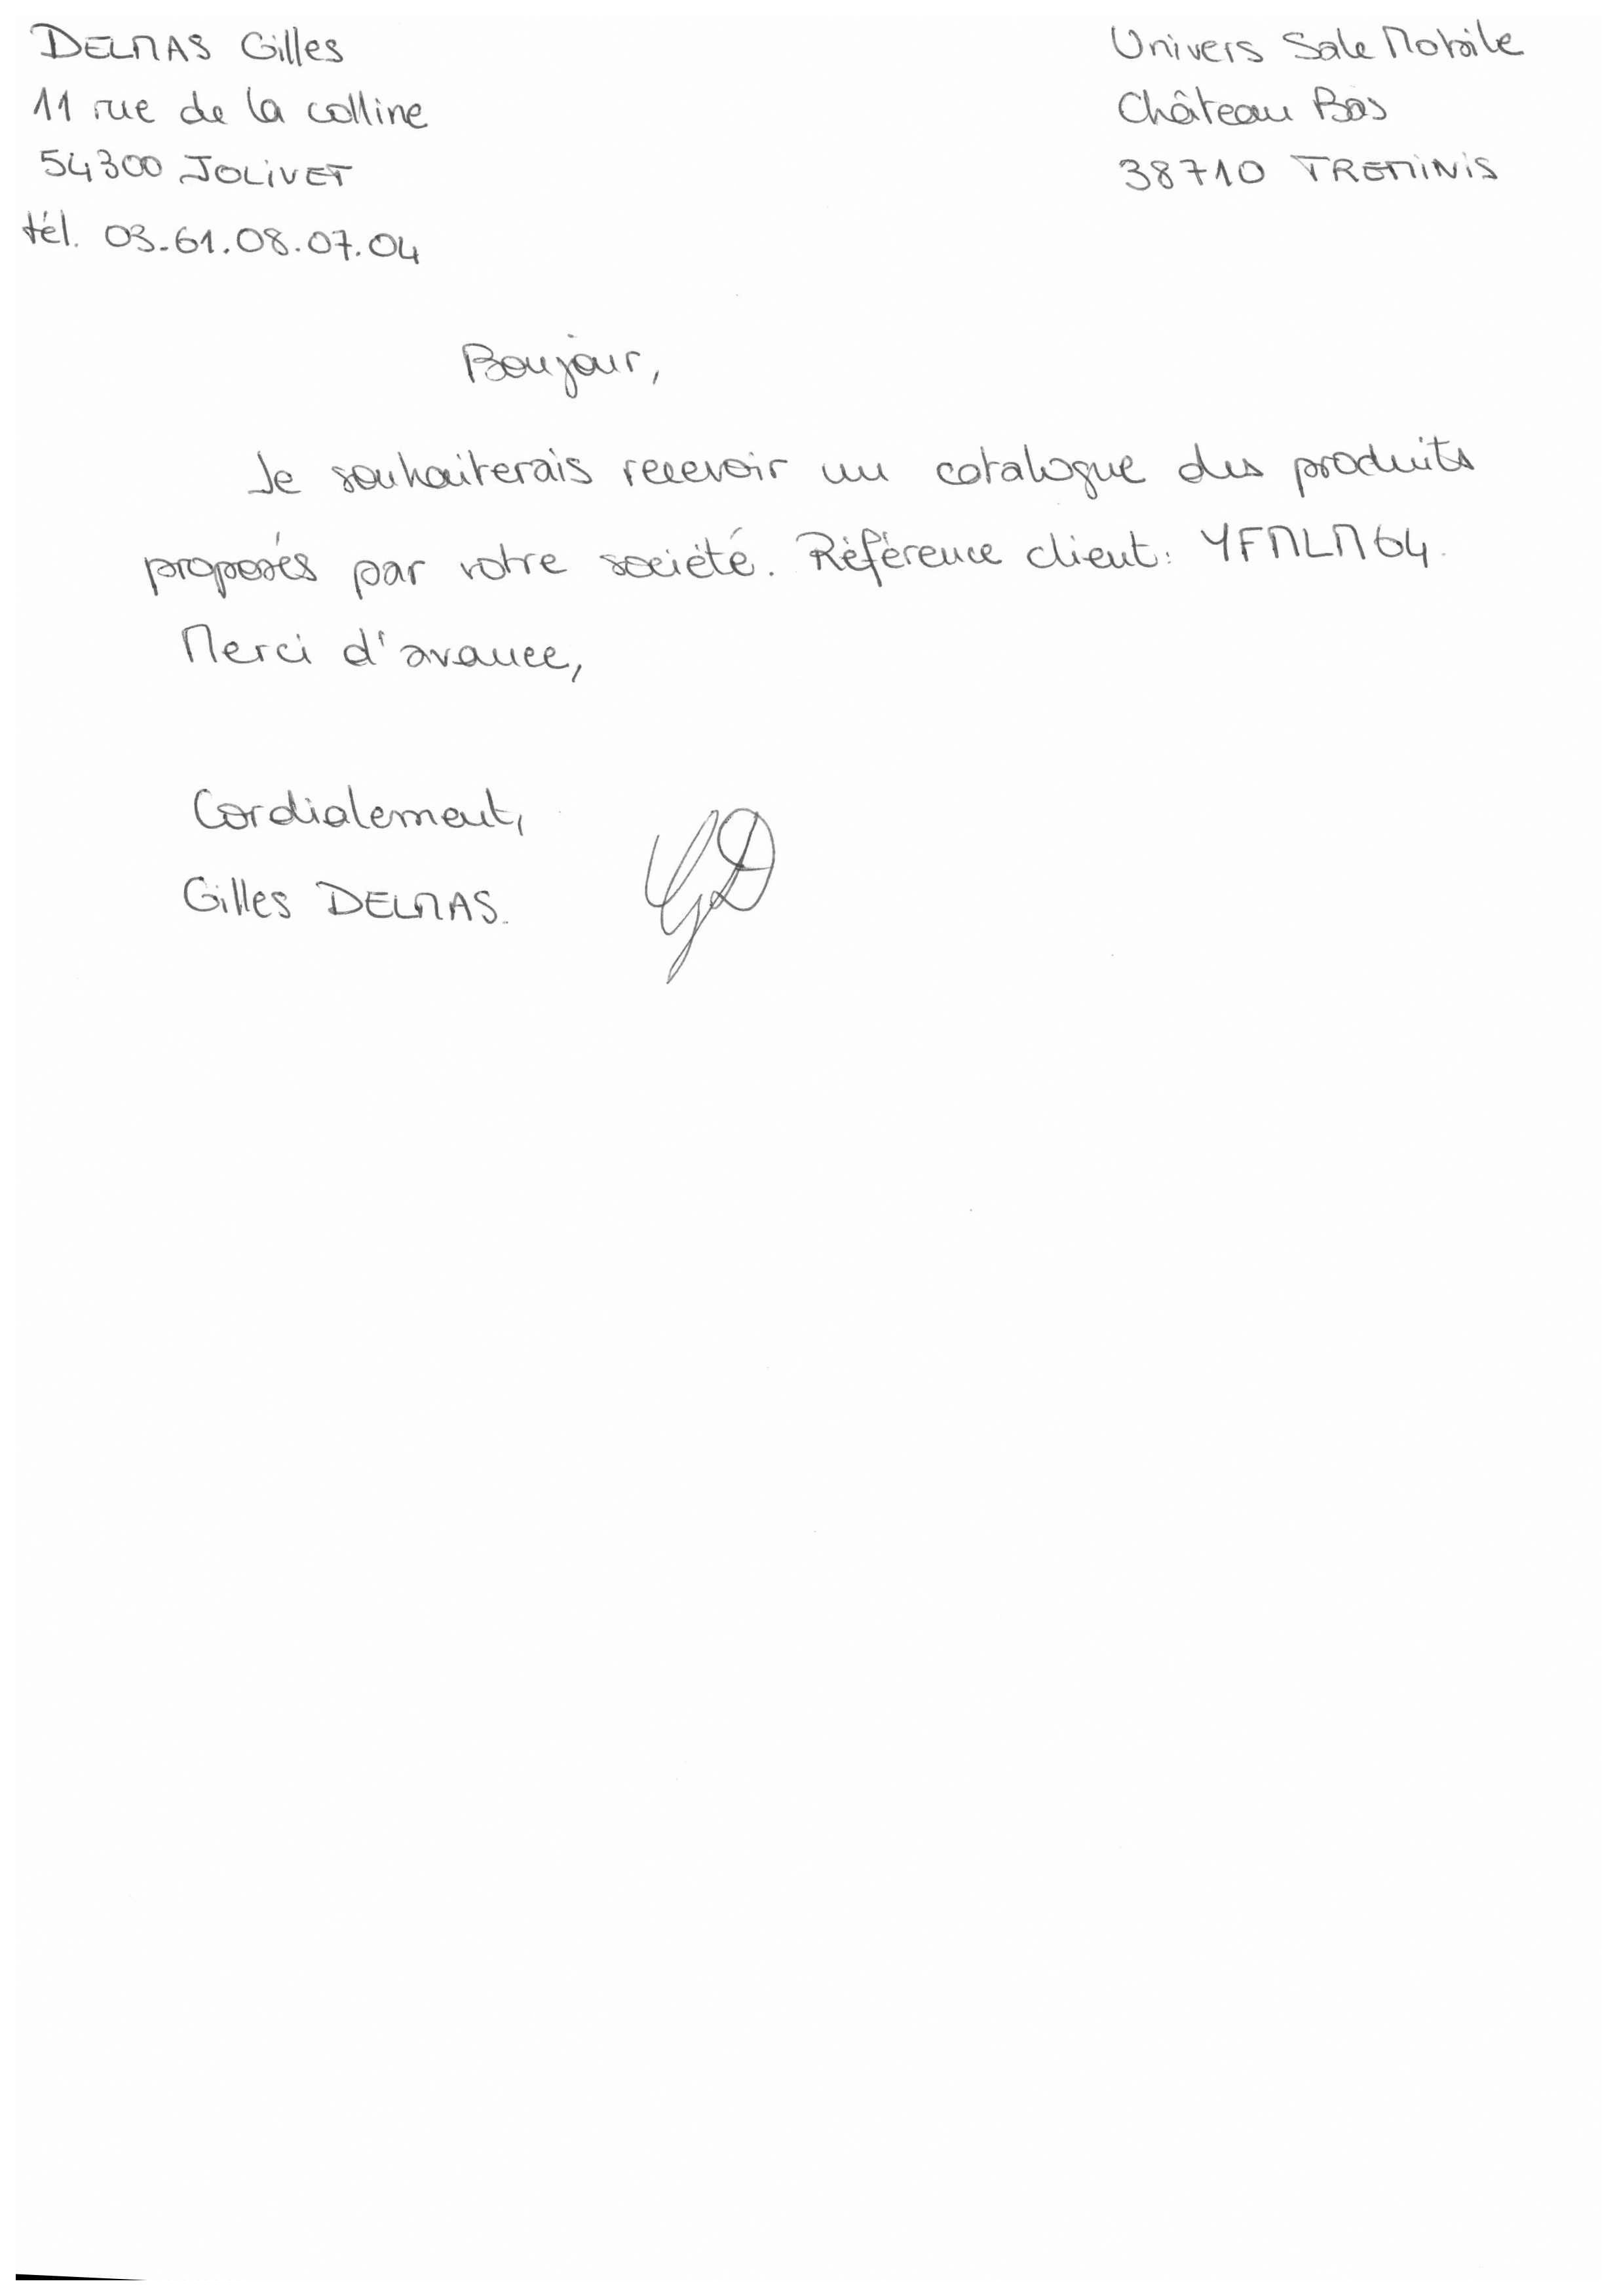 DELMAS Gilles
11 rue de la colline
54300 JOLIVET
tél. 03.61.08.07.04
Univers Sale Mobile
Château Bas
38710 TREMINIS
Boujour,
Je souhaiterais recevoir un catalogue des produits
proposés par votre société. Référence client: YFMLM64.
Merci d'avance,
Cordialement,
Gilles DELMAS.